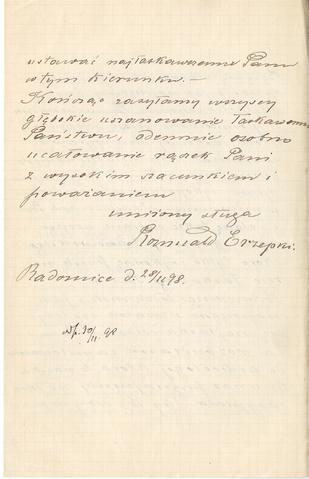 ustawać najłaskawszemu Panu
w tym kierunku. —
Kończąc zasyłamy wszyscy
głębokie uszanowanie Łaskawemu
Państwu, odemnie osobno
ucałowanie rączek Pani
z wysokim szacunkiem i
poważaniem
uniżony sługa
Romuald Erzepki.
Radomice d. 28/11 98.
wp. 30/11. 98